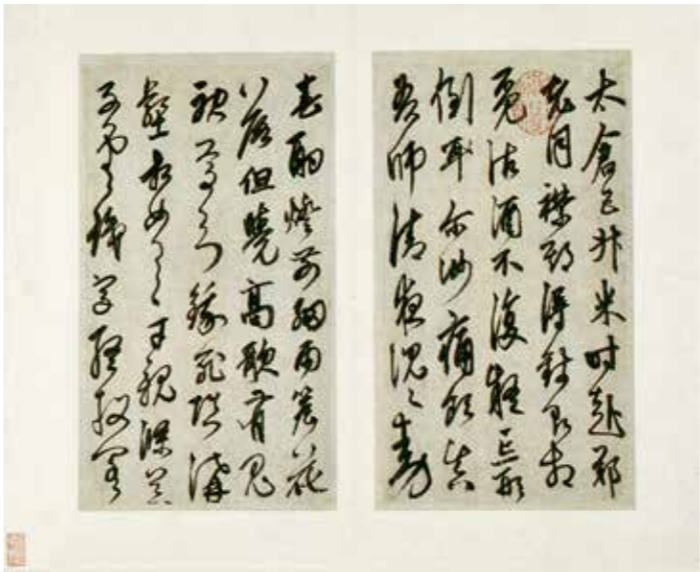 太倉五升米時赴鄭
老同襟期得錢即相
覓沽酒不復疑忘形
倒耳尔汝痛飲真
吾師清夜沈〻動
春酌燈前細雨簷花
落但覺高歌有鬼
神焉知餓死填溝
壑相如逸才親滌器
子雲識字終投閣